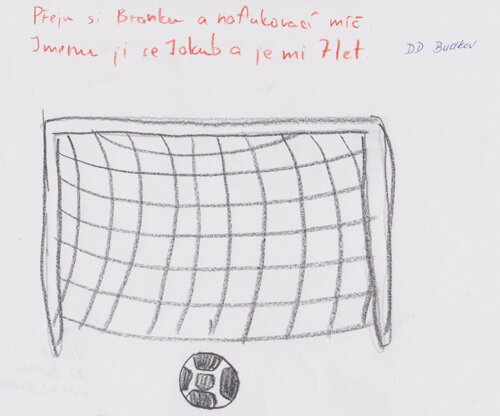 Přeju si Branku a nafukovací míč.
Jmenu ji se Jakub a je mi 7 let.
DD Budkov